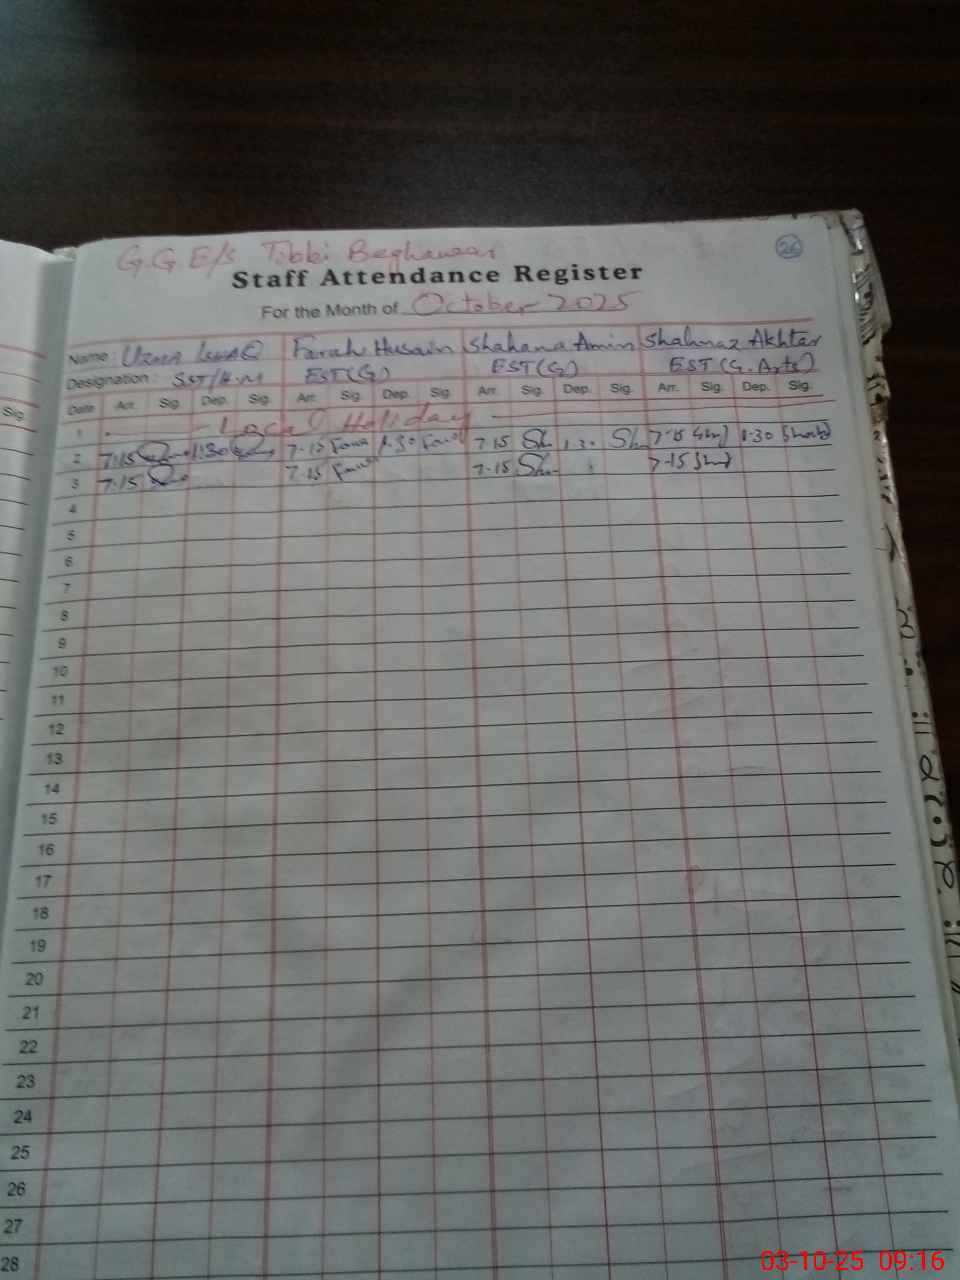 G.G E/S Tibbi
26
Staff Attendance Register
For the Month of October 2025
Name : Uzma Farah Husain Shahana Amin Shahnaz Akhtar
Designation : SST/H.M EST(G) EST(G) EST(G.Arts)
Sig.
Date Arr. Sig. Dep. Sig. Arr. Sig. Dep. Sig. Arr. Sig. Dep. Sig. Arr. Sig. Dep. Sig.
1 Local Holiday
2 7-15 1:30 7-15 1.30 7-15 1.30 7-15 1-30
3 7-15 7-15 7-15 7-15
4
5
6
7
8
9
10
11
12
13
14
15
16
17
18
19
20
21
22
23
24
25
26
27
28
03-10-25 09:16